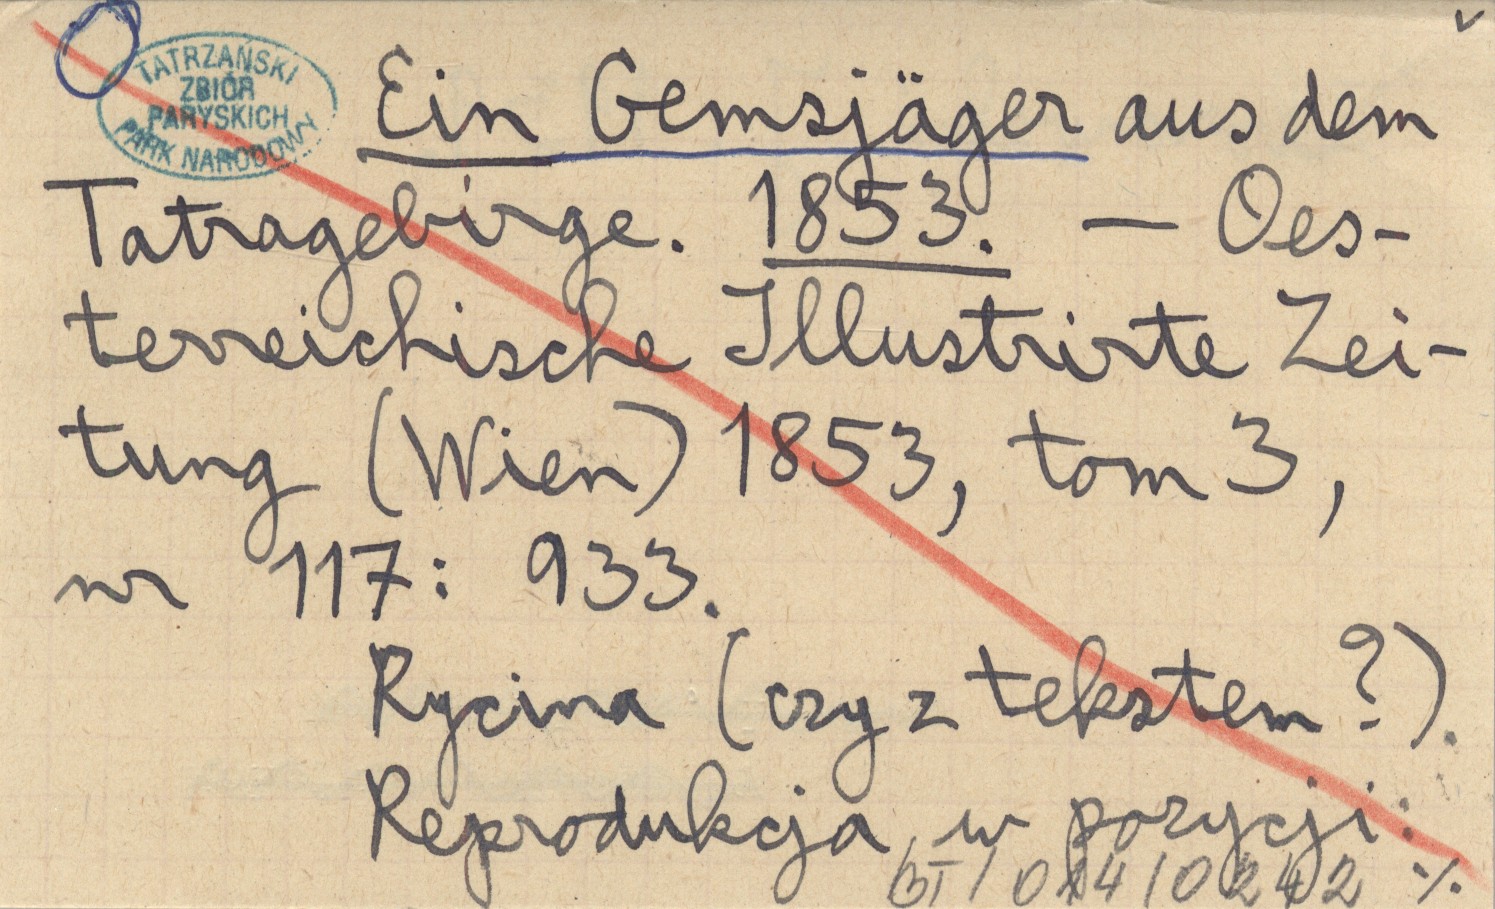 TATRZAŃSKI
ZBIÓR
PARYSKICH
PARK NARODOWY
Ein Gemsjäger aus dem
Tatragebirge. 1853. — Oes-
terreichische Illustrirte Zei-
tung (Wien) 1853, tom 3,
nr 117: 933.
Rycina (czy z tekstem?).
Reprodukcja w pozycji:
BT/014/0242 ./.